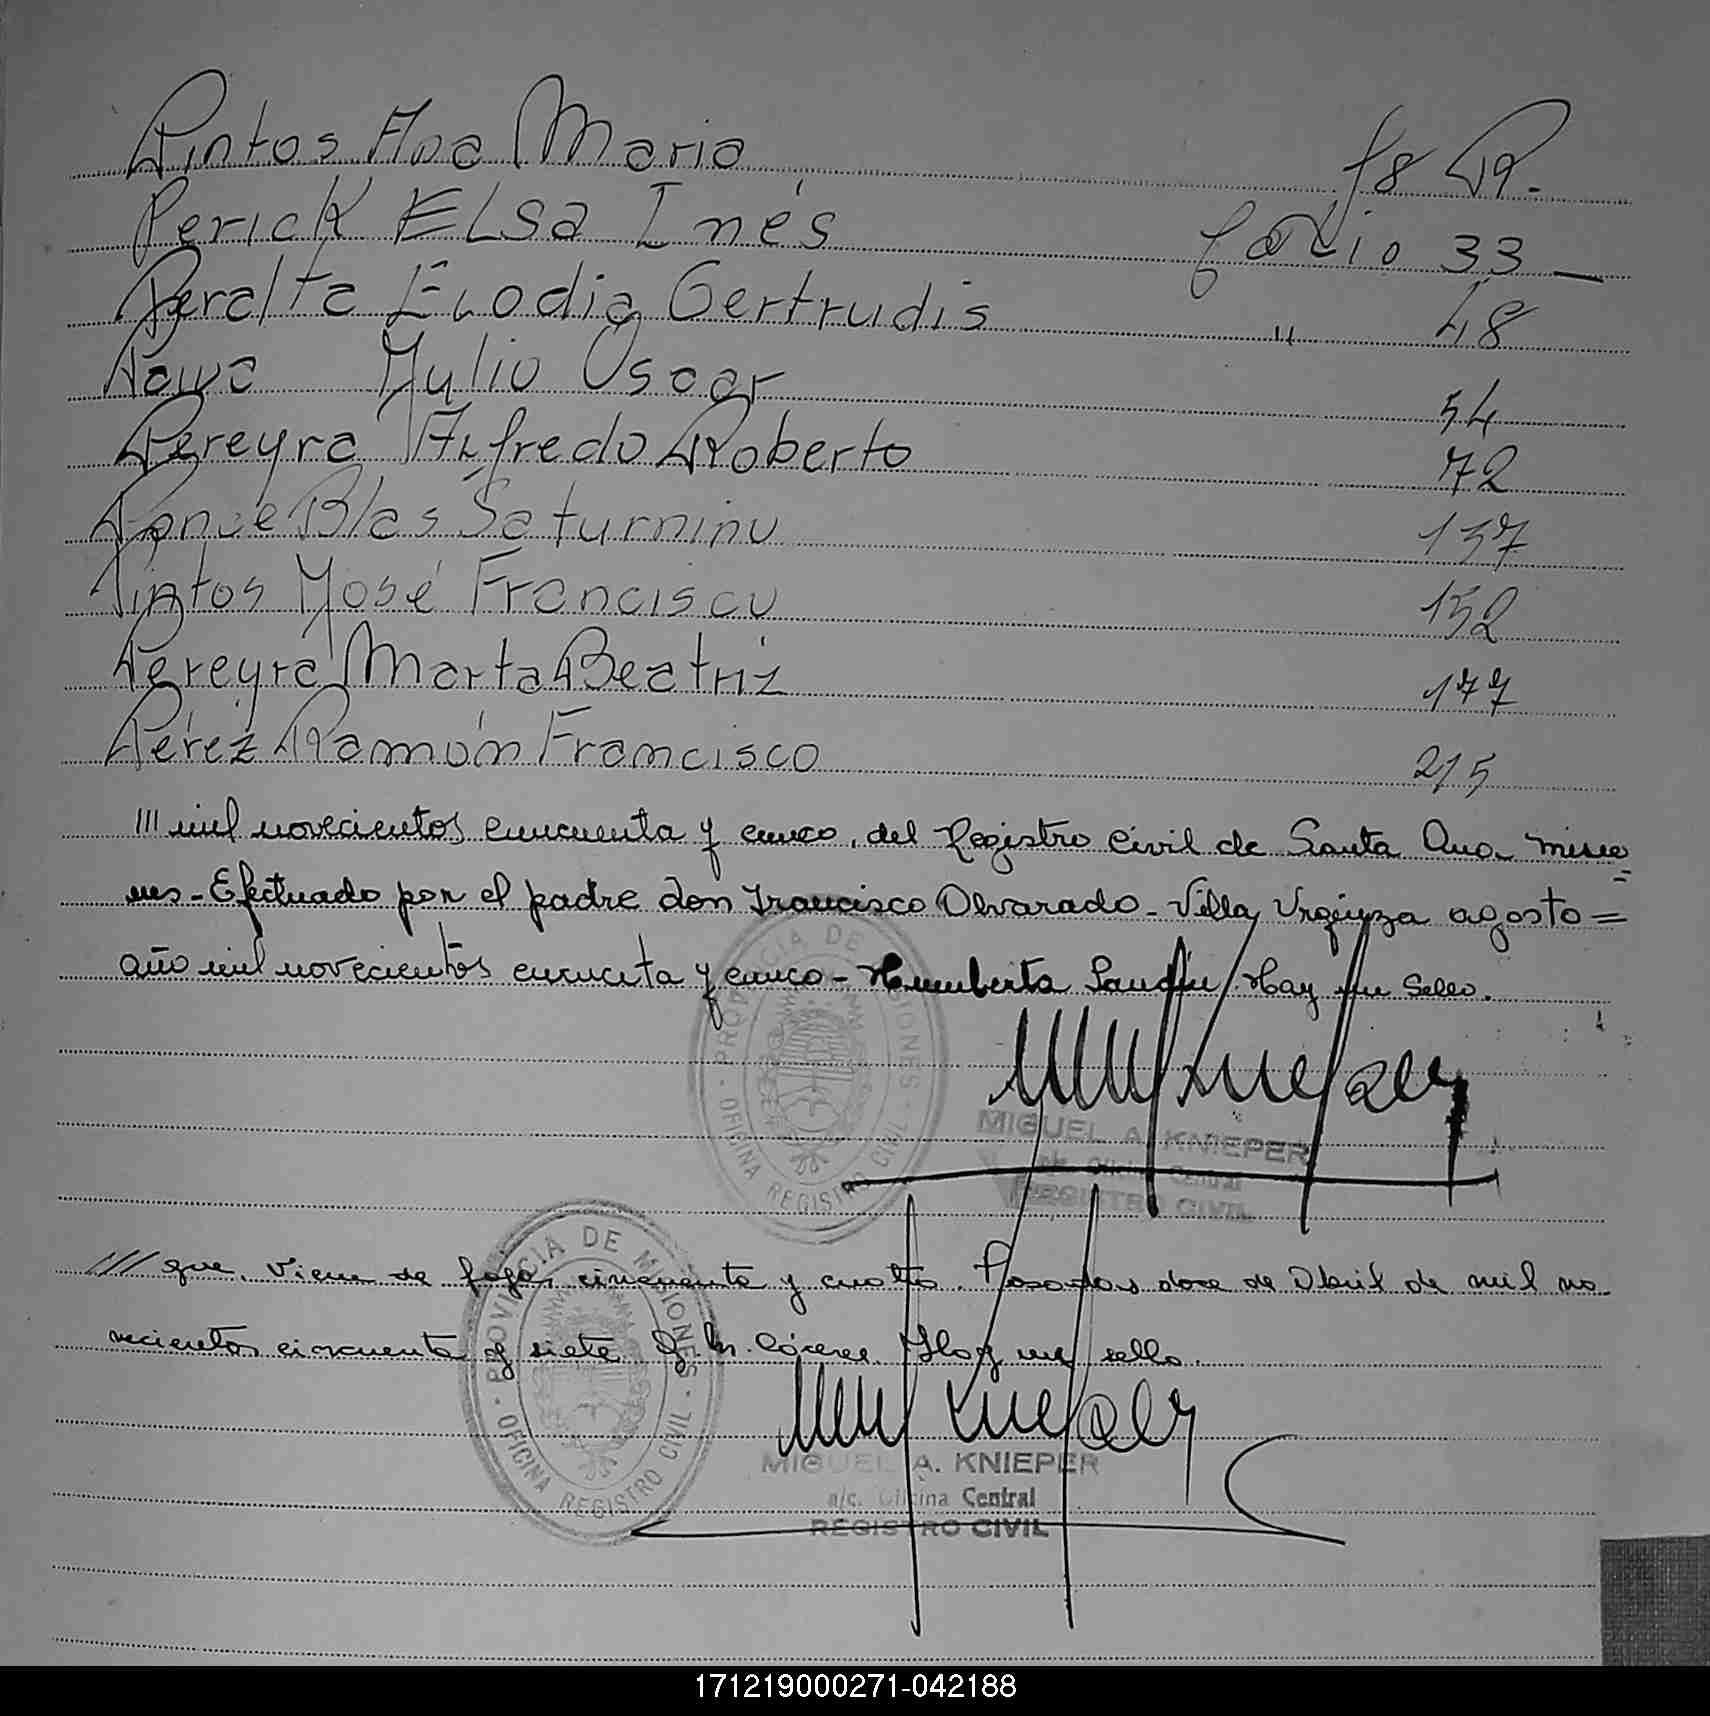 Pintos Ana Maria 18 P.
Perick ELSA Inés folio 33
Peralta Elodia Gertrudis " 48
Julio Oscar 54
Pereyra Alfredo Roberto 72
Ponce Blas Saturnino 137
Pintos José Francisco 152
Pereyra Marta Beatriz 177
Pérez Ramón Francisco 215
/// mil novecientos cincuenta y cinco, del Registro Civil de Santa Ana Misio=
nes - Efectuado por el padre don Francisco Alvarado - Villa Urquiza agosto =
año mil novecientos cincuenta y cinco - Humberto Hay un Sello.
PROVINCIA DE MISIONES
OFICINA REGISTRO CIVIL
MIGUEL A. KNIEPER
a/c. Oficina Central
REGISTRO CIVIL
/// que viene de foja cincuenta y cuatro. Posadas doce de Abril de mil no
vecientos cincuenta y siete. Hay un sello.
PROVINCIA DE MISIONES
OFICINA REGISTRO CIVIL
MIGUEL A. KNIEPER
a/c. Oficina Central
REGISTRO CIVIL
171219000271-042188